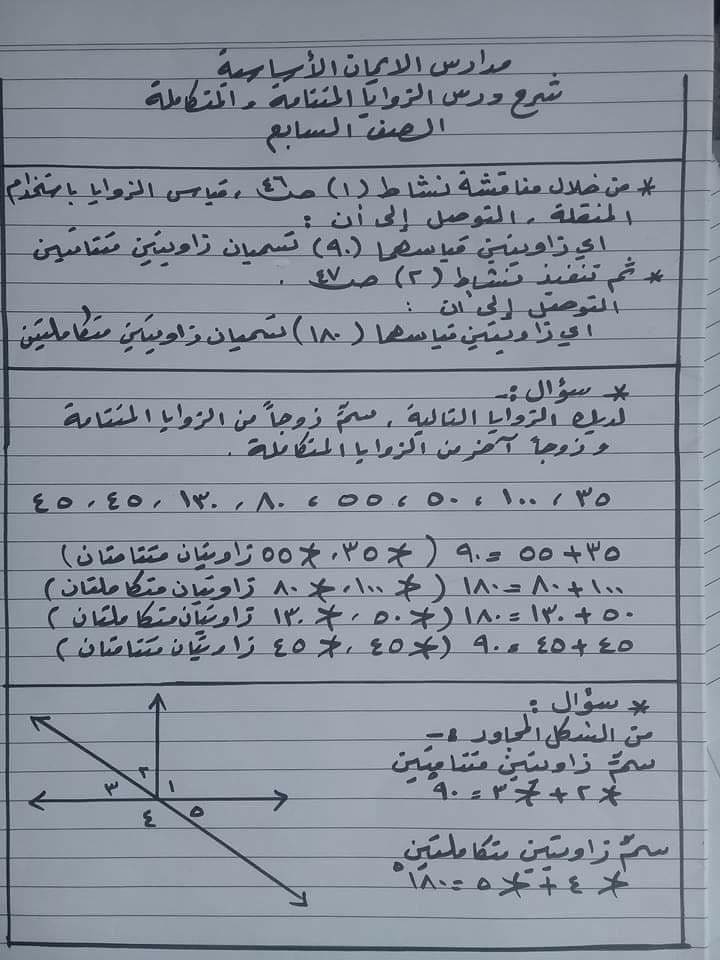 مدارس الايمان الأساسية
شرح درس الزوايا المتتامة والمتكاملة
الصف السابع
* من خلال مناقشة نشاط (١) صـ٤٦ ، قياس الزوايا باستخدام
المنقلة ، التوصل إلى أن :
اي زاويتين قياسهما (٩٠) تسميان زاويتين متتامتين
* ثم تنفيذ نشاط (٢) صـ٤٧ .
التوصل إلى أن :
اي زاويتين قياسهما (١٨٠) تسميان زاويتين متكاملتين
* سؤال :-
لديك الزوايا التالية ، سمِّ زوجاً من الزوايا المتتامة
وزوجاً آخر من الزوايا المتكاملة .
٣٥ ، ١٠٠ ، ٥٠ ، ٥٥ ، ٨٠ ، ١٣٠ ، ٤٥ ، ٤٥
٣٥ + ٥٥ = ٩٠ ( ∢٣٥ ، ∢٥٥ زاويتان متتامتان )
١٠٠ + ٨٠ = ١٨٠ ( ∢١٠٠ ، ∢٨٠ زاويتان متكاملتان )
٥٠ + ١٣٠ = ١٨٠ ( ∢٥٠ ، ∢١٣٠ زاويتان متكاملتان )
٤٥ + ٤٥ = ٩٠ ( ∢٤٥ ، ∢٤٥ زاويتان متتامتان )
* سؤال :
من الشكل المجاور :-
سمِّ زاويتين متتامتين
∢٢ + ∢٣ = ٩٠
سمِّ زاويتين متكاملتين
∢٤ + ∢٥ = ١٨٠°
١
٢
٣
٤
٥